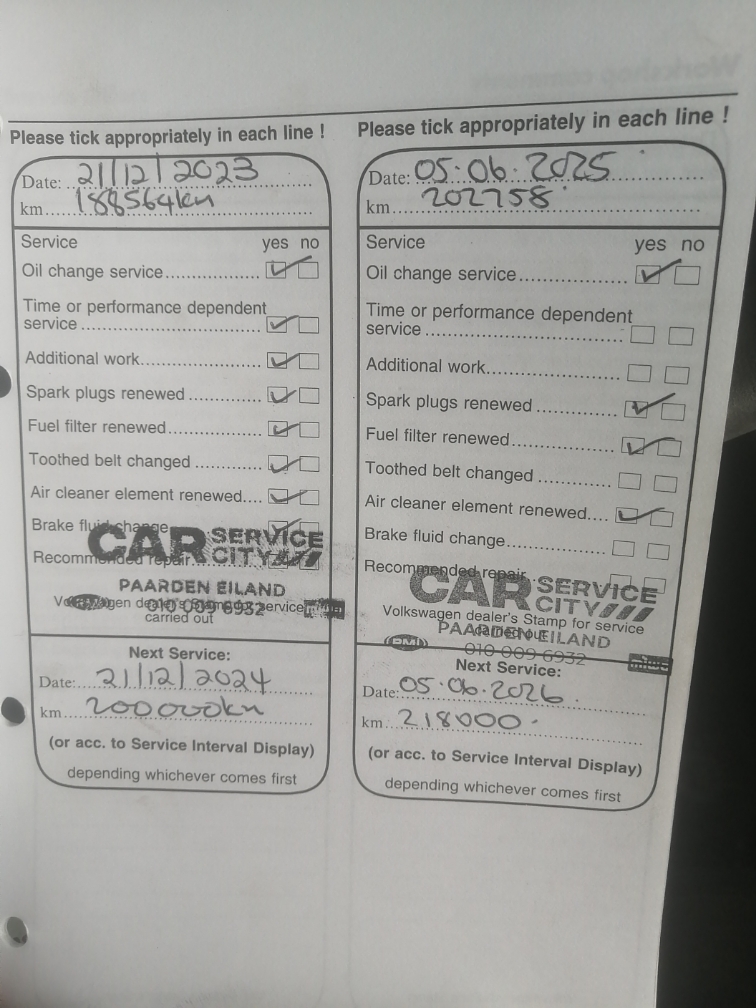 Please tick appropriately in each line !
Date: 21/12/2023
km 188564km
Service yes no
Oil change service
Time or performance dependent
service
Additional work
Spark plugs renewed
Fuel filter renewed
Toothed belt changed
Air cleaner element renewed
Brake fluid change
Recommended repair
CAR SERVICE CITY
PAARDEN EILAND
010 009 6932
Volkswagen dealer's Stamp for service
carried out
Next Service:
Date: 21/12/2024
km 200000km
(or acc. to Service Interval Display)
depending whichever comes first
Please tick appropriately in each line !
Date: 05.06.2025
km 202758
Service yes no
Oil change service
Time or performance dependent
service
Additional work
Spark plugs renewed
Fuel filter renewed
Toothed belt changed
Air cleaner element renewed
Brake fluid change
Recommended repair
CAR SERVICE CITY
Volkswagen dealer's Stamp for service
carried out
PAARDEN EILAND
010 009 6932
Next Service:
Date: 05.06.2026
km 218000
(or acc. to Service Interval Display)
depending whichever comes first